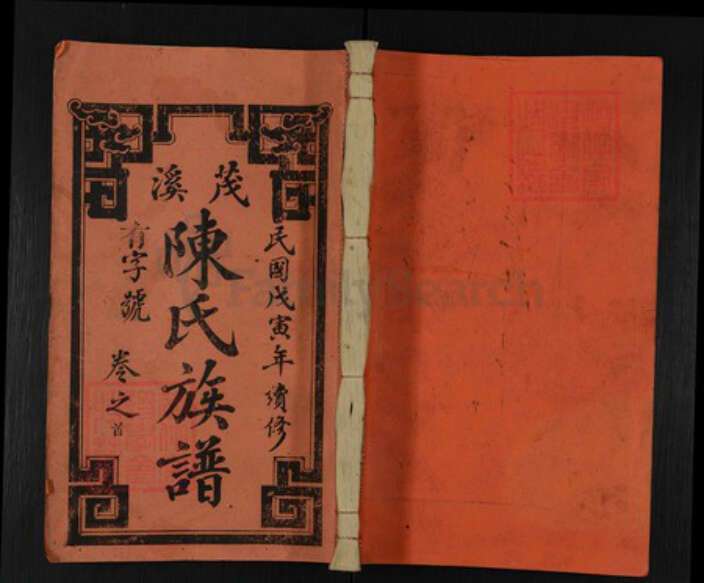 茂溪
民國戊寅年續修
陳氏族譜
有字號
卷之首
FamilySearch